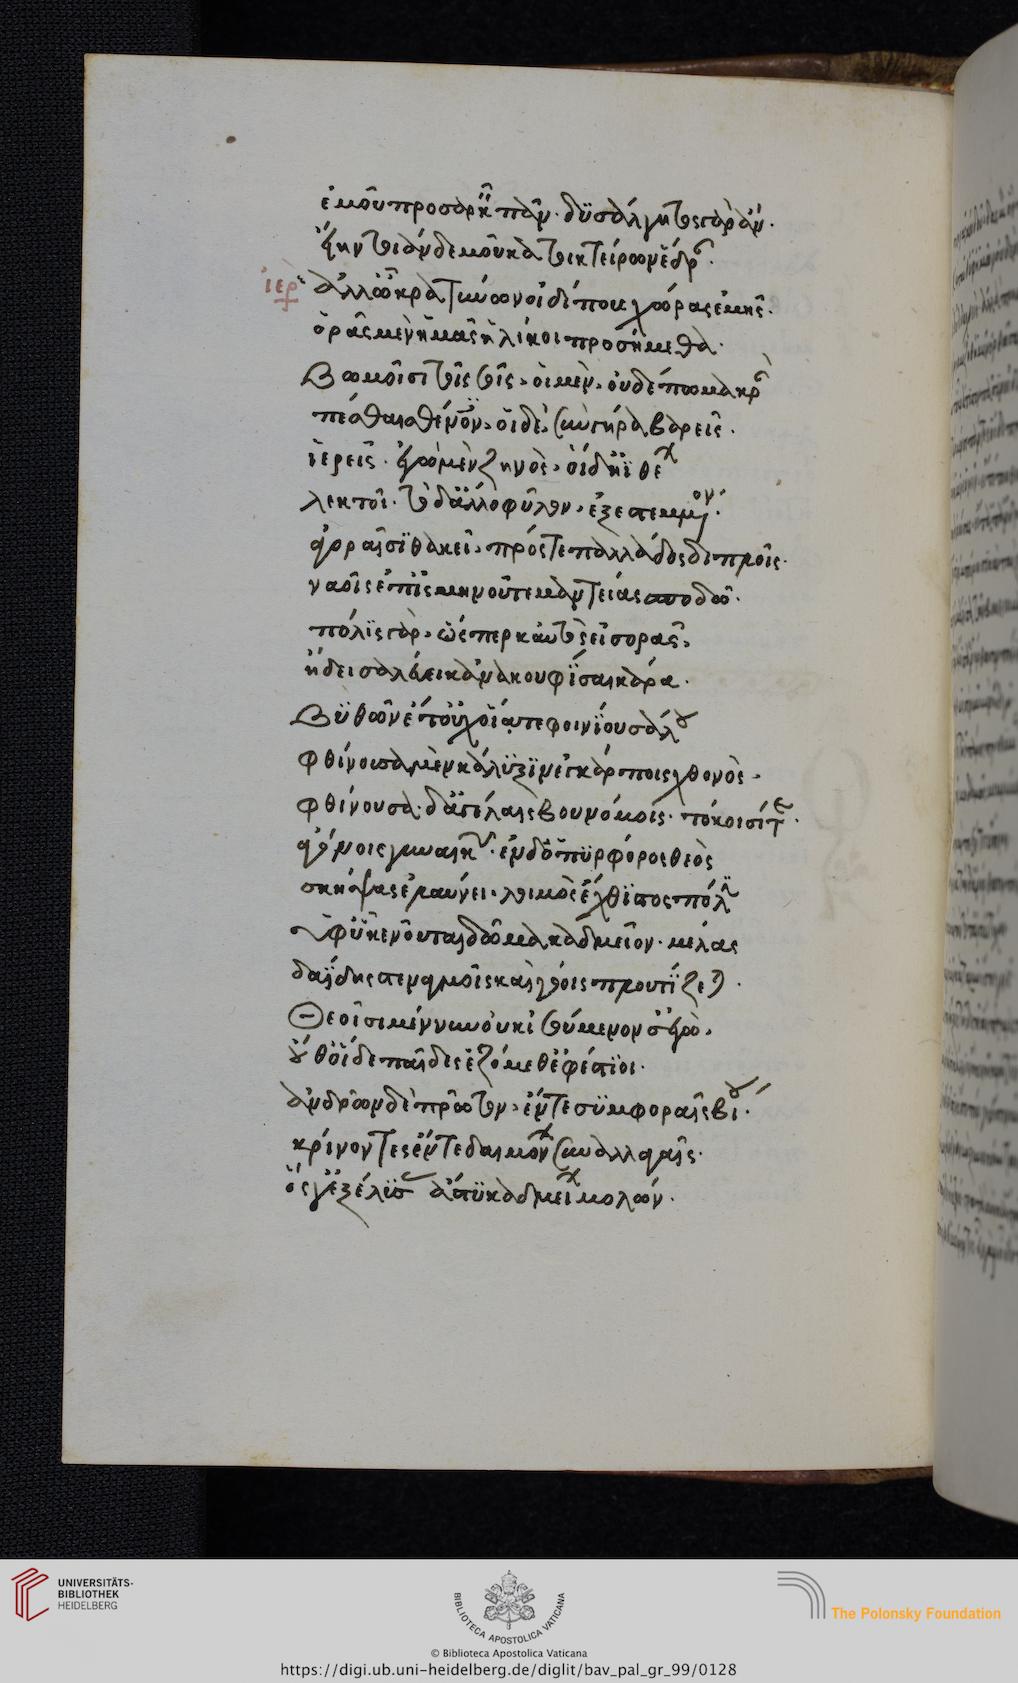 ἐμοῦ προσαρκεῖν πᾶν. δυσάλγητος γὰρ ἂν.
εἴην τοιάνδε μοὐ κατοικτείρων ἕδραν.
ἱερ ἀλλ' ὦ κρατύνων οἰδίπους χώρας ἐμῆς.
ὁρᾶς μὲν ἡμᾶς ἡλίκοι προσήμεθα.
βωμοῖσι τοῖς σοῖς, οἱ μὲν, οὐδέπω μακρὰν
πτέσθαι σθένοντες, οἱ δὲ, σὺν γήρᾳ βαρεῖς.
ἱερεῖς. ἐγὼ μὲν ζηνὸς, οἱ δ' ἠϊθέων
λεκτοί. τὸ δ' ἄλλο φῦλον, ἐξεστεμμένον.
ἀγοραῖσι θακεῖ, πρός τε παλλάδος διπλοῖς.
ναοῖς ἐπ' ἰσμηνοῦ τε μαντείᾳ σποδῷ.
πόλις γὰρ, ὥσπερ καὐτὸς εἰσορᾷς,
ἤδη σαλεύει κἀνακουφίσαι κάρα.
βυθῶν ἔτ' οὐχ οἵα τε φοινίου σάλου
φθίνουσα μὲν κάλυξιν ἐγκάρποις χθονὸς,
φθίνουσα δ' ἀγέλαις βουνόμοις. τόκοισί τε.
ἀγόνοις γυναικῶν. ἐν δ' ὁ πυρφόρος θεὸς
σκήψας ἐλαύνει. λοιμὸς ἔχθιστος πόλιν
ὑφ' οὗ κενοῦται δῶμα καδμεῖον. μέλας
δ' ἅιδης στεναγμοῖς καὶ γόοις πλουτίζεται.
θεοῖσι μέν νυν οὐκ ἰσούμενον σ' ἐγὼ,
οὐδ' οἵδε παῖδες ἑζόμεθ' ἐφέστιοι.
ἀνδρῶν δὲ πρῶτον, ἔν τε συμφοραῖς βίου.
κρίνοντες ἔν τε δαιμόνων συναλλαγαῖς.
ὅς γ' ἐξέλυσας ἄστυ καδμείων μολών.
UNIVERSITÄTS-
BIBLIOTHEK
HEIDELBERG
BIBLIOTECA APOSTOLICA VATICANA
The Polonsky Foundation
© Biblioteca Apostolica Vaticana
https://digi.ub.uni-heidelberg.de/diglit/bav_pal_gr_99/0128